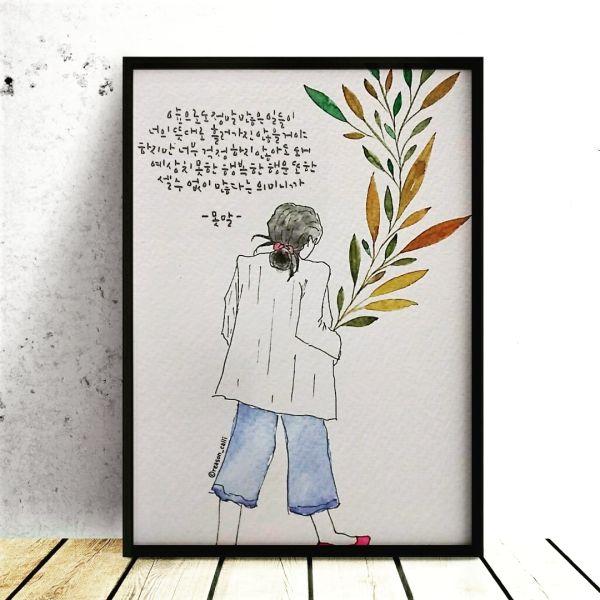 앞으로도 정말 많은 일들이
너의 뜻대로 흘러가진 않을게야
하지만 너무 걱정하지 않아도 돼
예상치 못한 행복한 행운 또한
셀 수 없이 많다는 의미니까
- 못말 -
©reason_calli